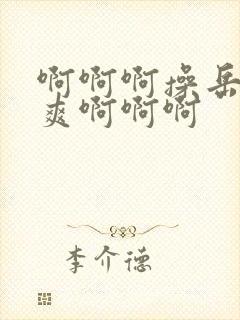 啊啊啊操岳
爽啊啊啊
李介德